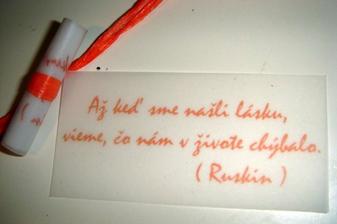 Až keď sme našli lásku,
vieme, čo nám v živote chýbalo.
( Ruskin )